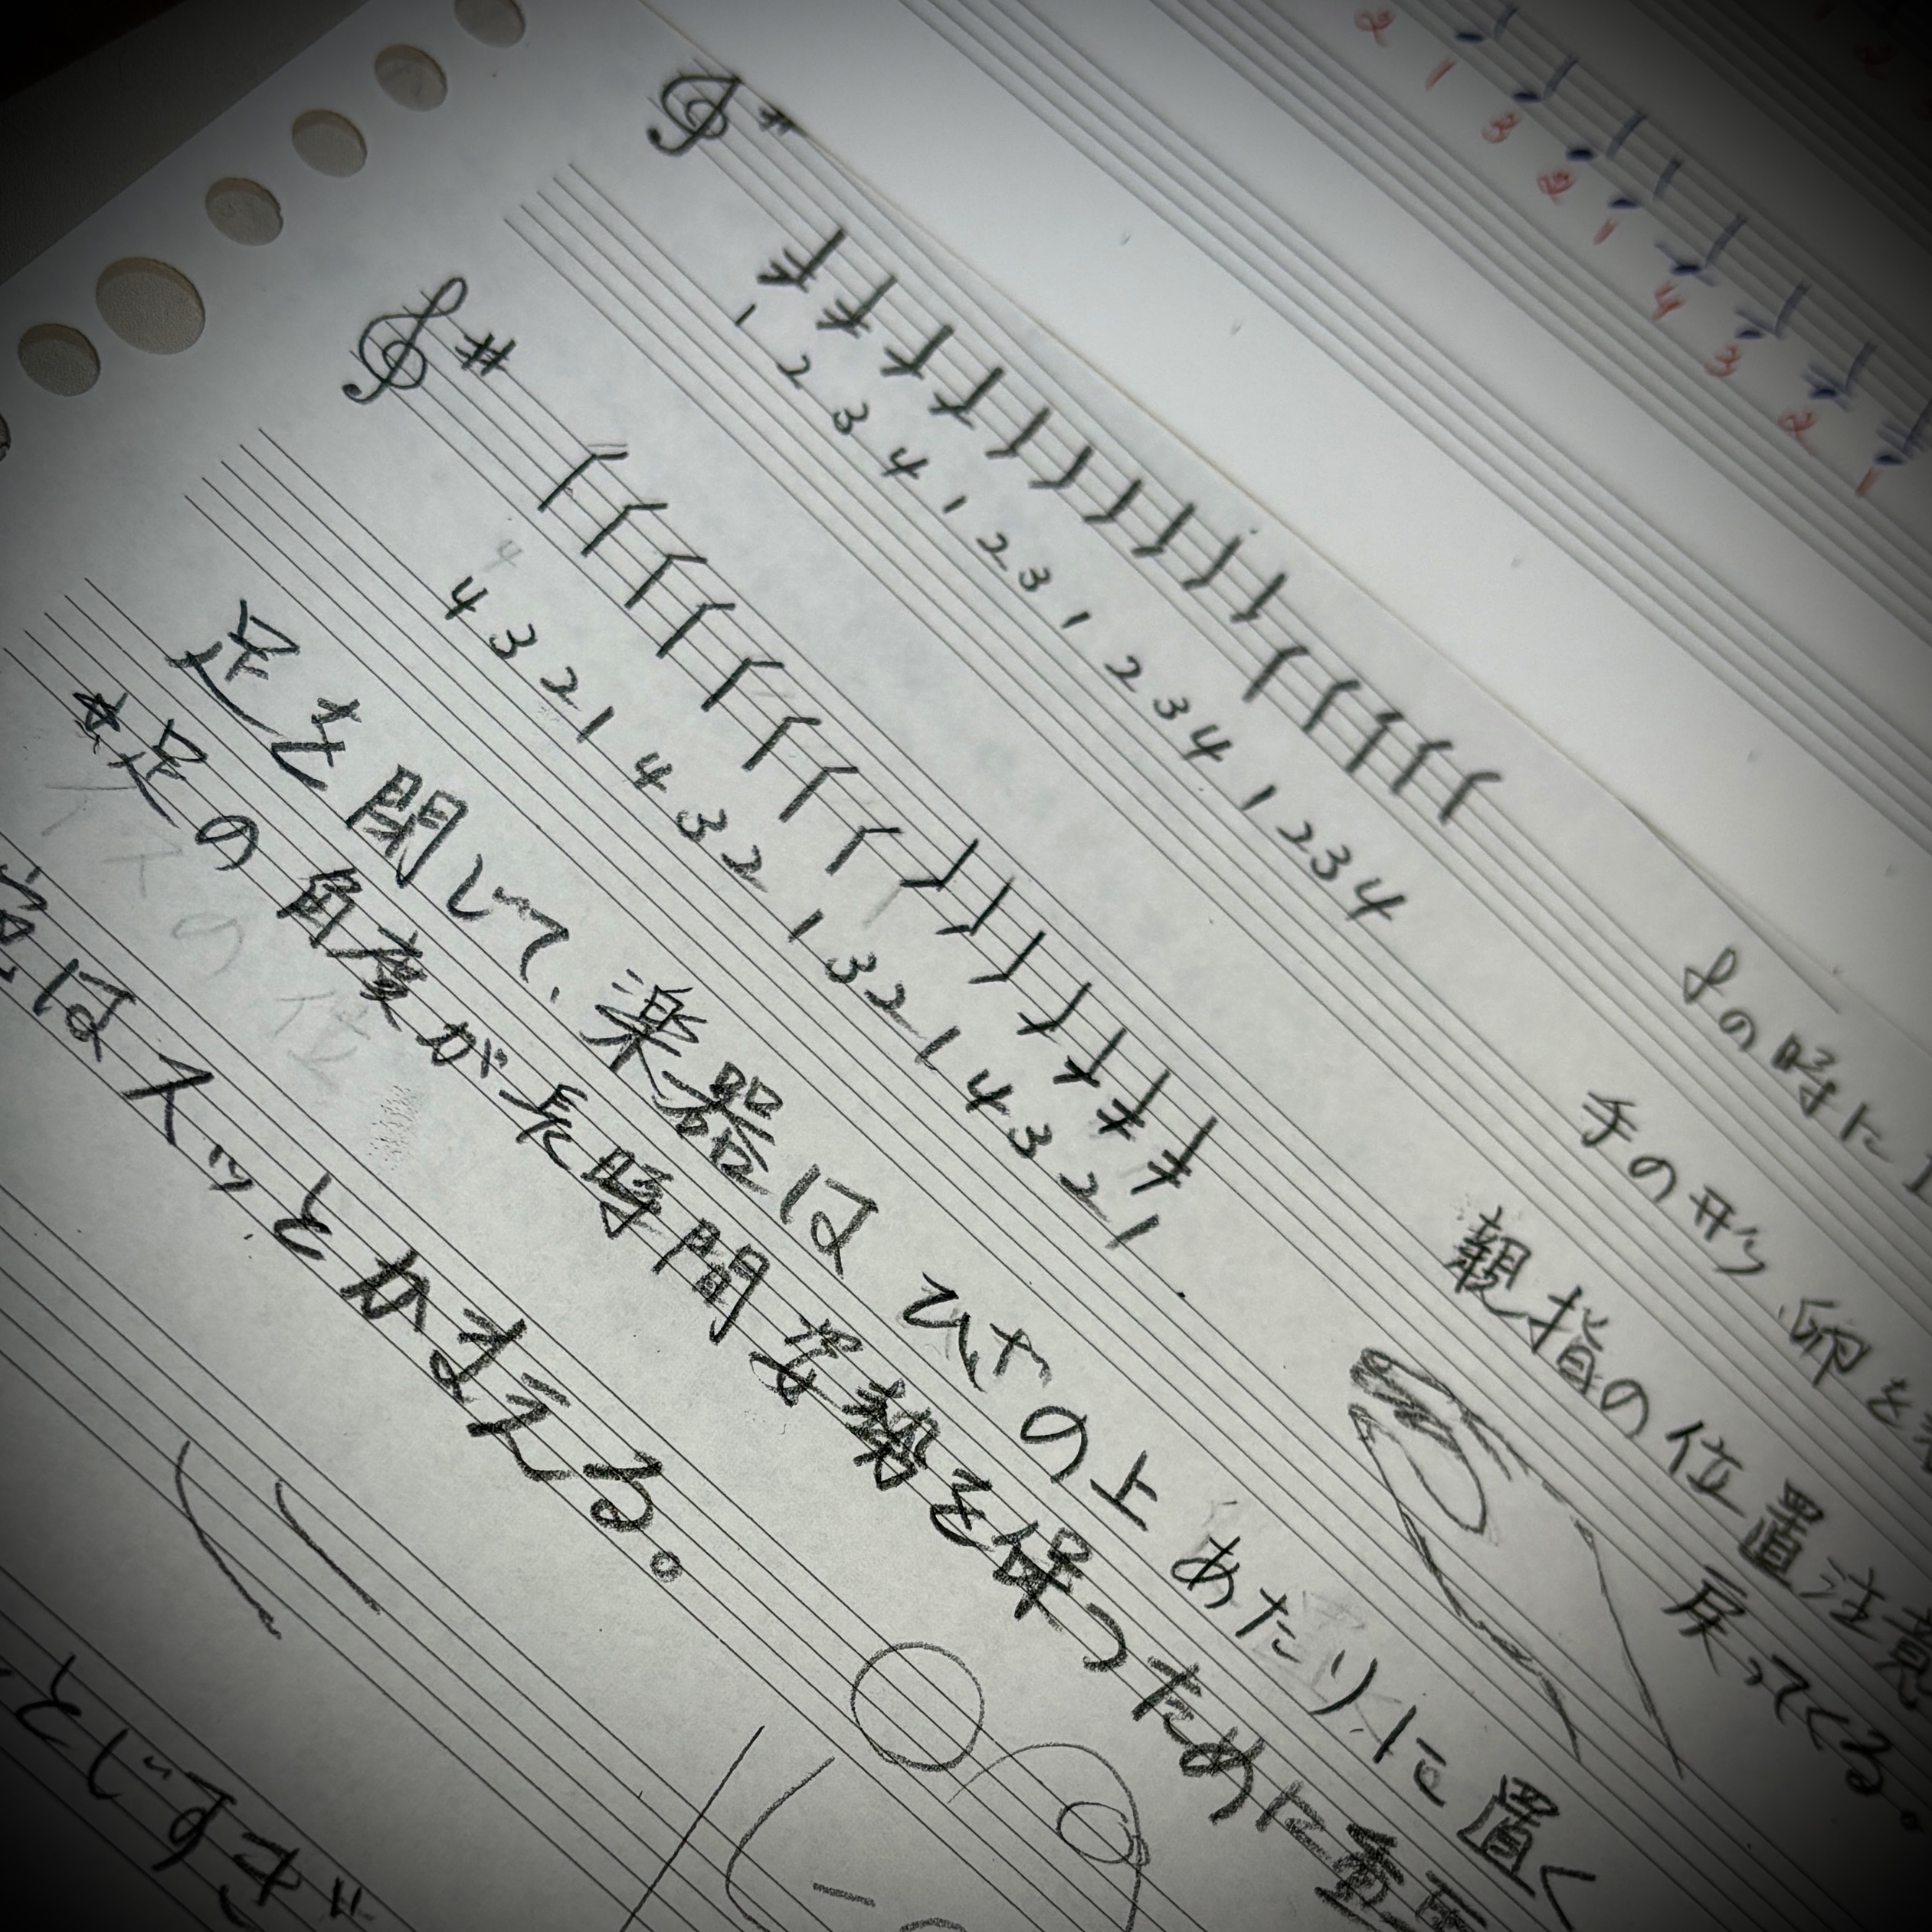 2 1 3 2 1 4 3 2 1
1 2 3 4 1 2 3 1 2 3 4 1 2 3 4
4
4 3 2 1 4 3 2 1 3 2 1 4 3 2 1
の時に
手の形 卵を
親指の位置注意
戻ってくる。
足を閉じて、楽器はひざの上あたりに置く
*足の角度が長時間姿勢を保つために重要
はスッとかまえる。